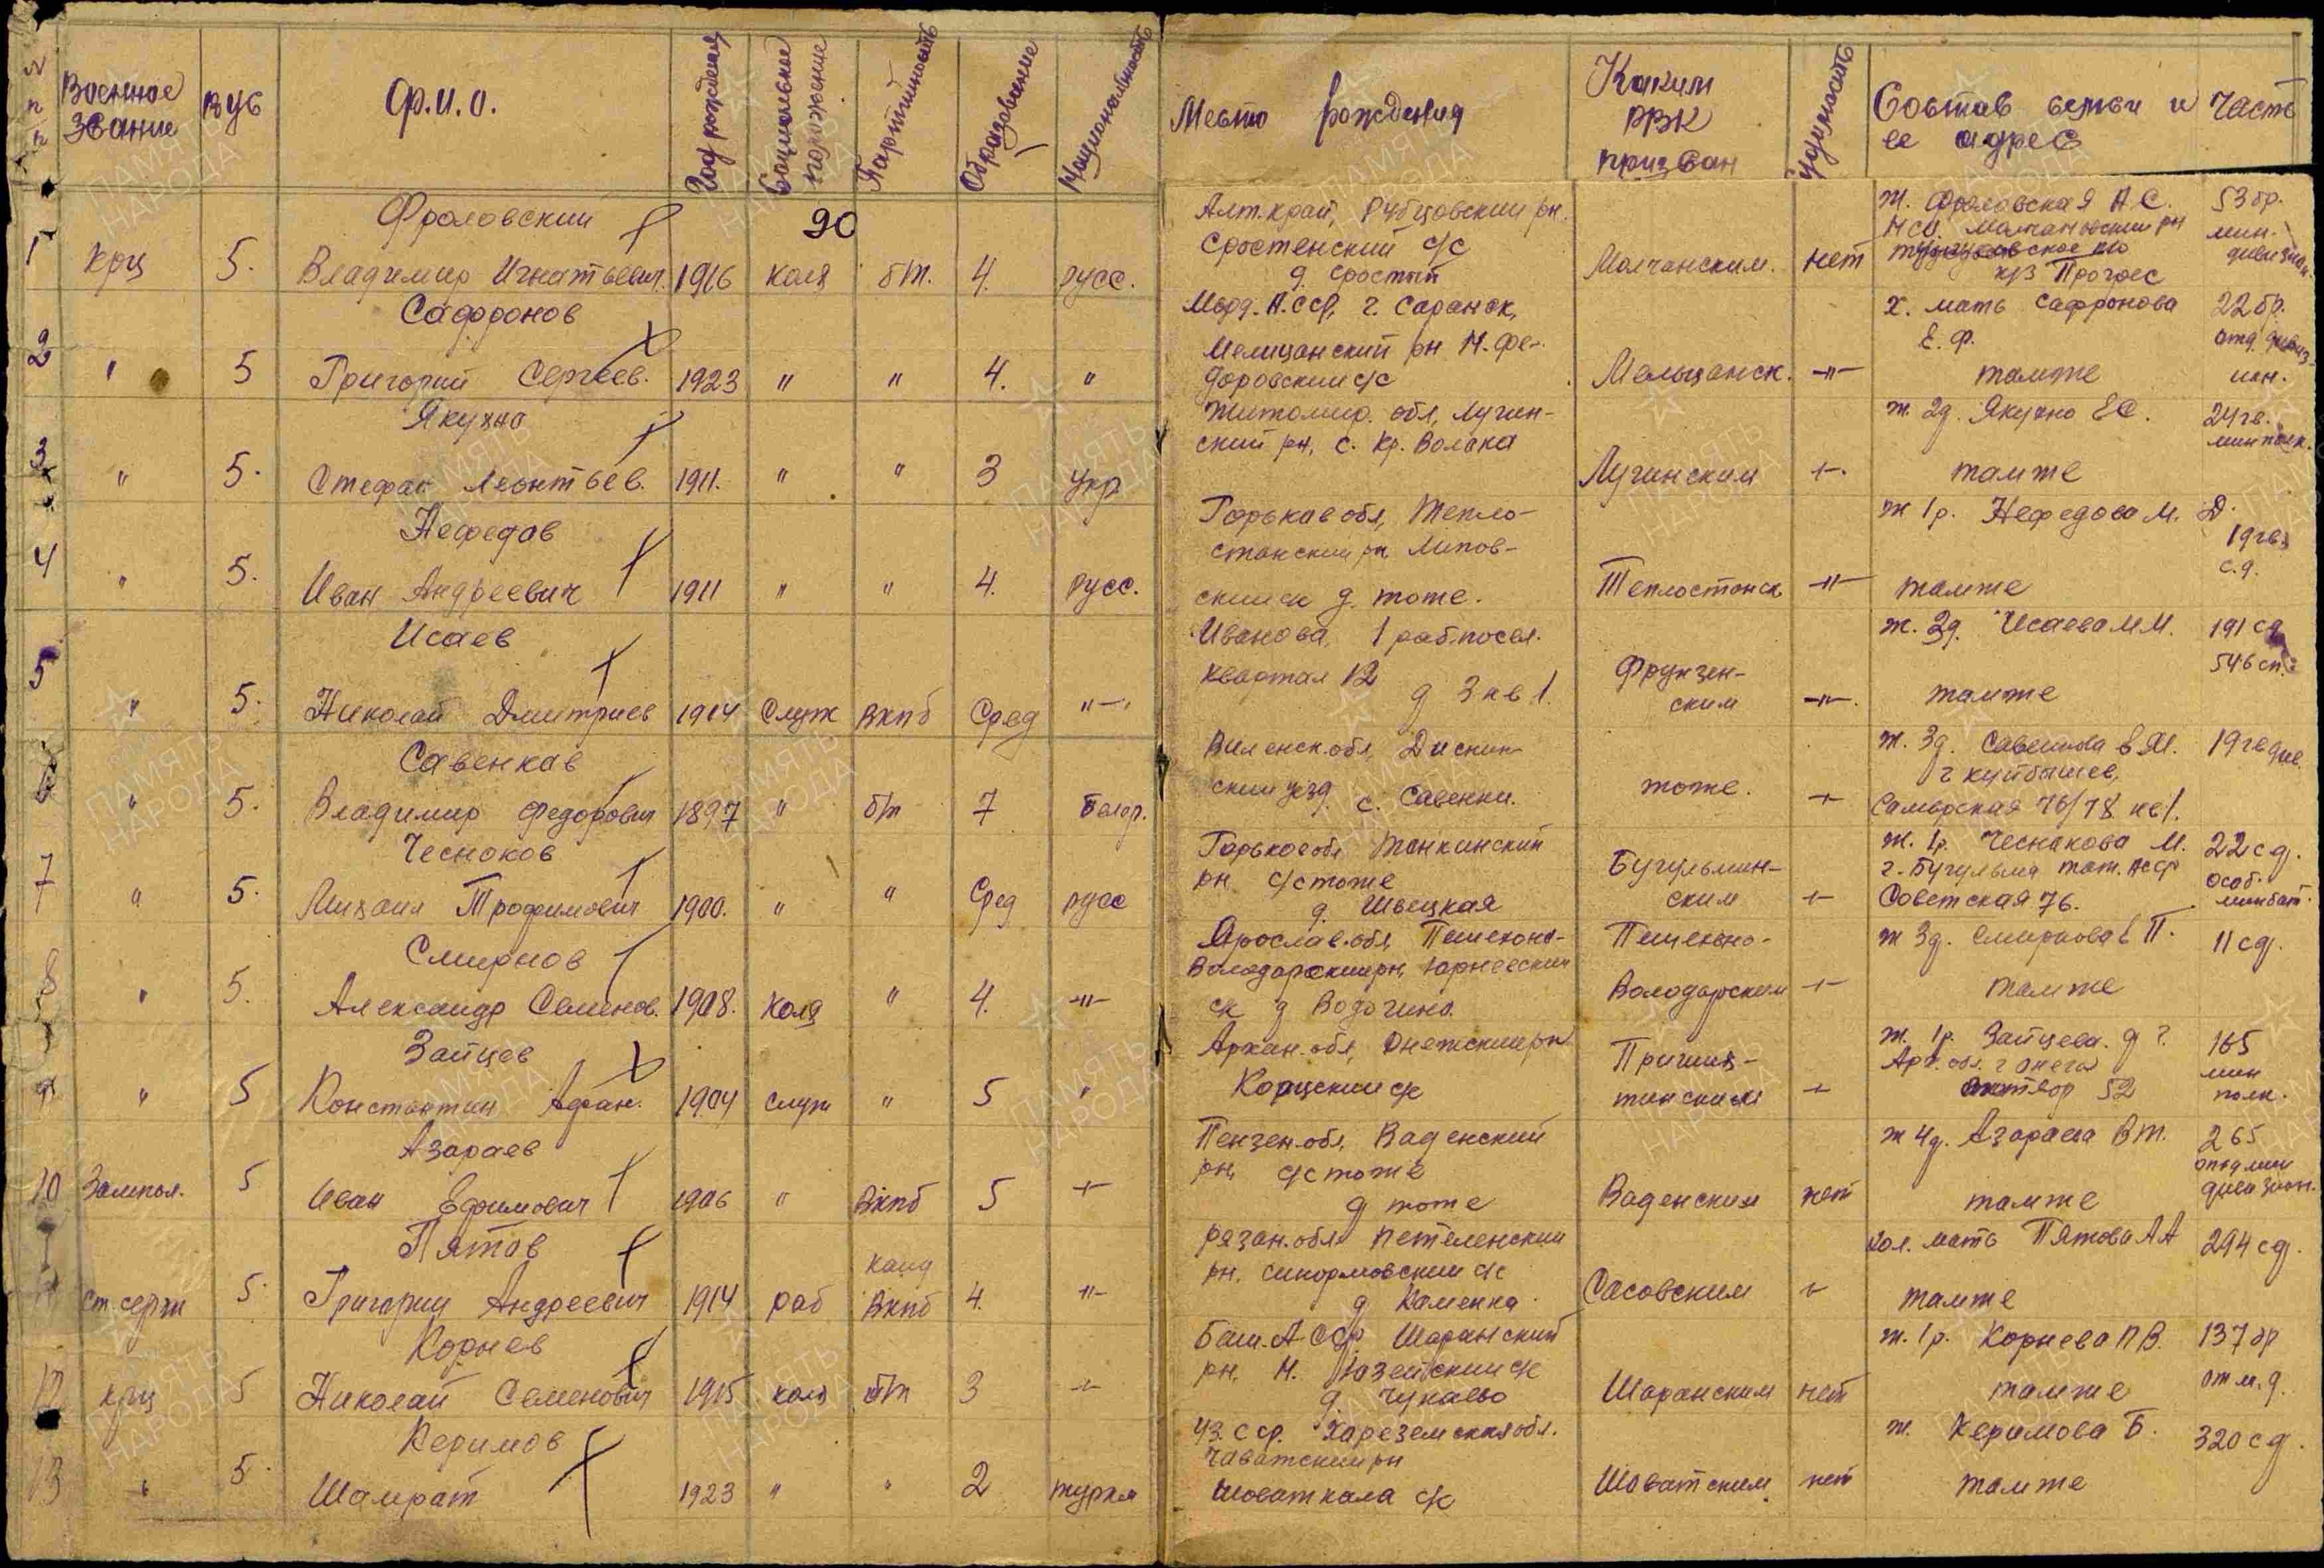 № п/п Военное звание ВУС Ф.И.О. Год рождения Социальное положение Партийность Образование Национальность Место рождения Каким РВК призван Судимость Состав семьи и ее адрес Часть
90
1 крц 5. Фроловский Владимир Игнатьевич. 1916 колх б/п. 4. русс. Алт. край, Рубцовский рн. Сростенский с/с д. Сростый Молчанским. нет ж. Фроловская А.С. Молчановский рн к/з Прогрес 53 бр. мин. дивизиан.
2 " 5 Сафронов Григорий Сергеев. 1923 " " 4. " Морд. А.ССР, г. Саранск, Мелицанский рн Н. Фе- доровский с/с Мельцанск. -"- х. мать Сафронова Е.Ф. тамже 22 бр. отд. дивиз- ион.
3 " 5. Якухно Стефан Леонтьев. 1911. " " 3 укр Житомир. обл, Лугин- ский рн, с. Кр. Волока Лугинским -"- ж. 2д. Якухно Е С. тамже 24 гв. минполк.
4 " 5. Нефедов Иван Андреевич 1911 " " 4. русс. Горьков обл, Тепло- станский рн Липов- ский ск д. тоже. Теплостанск -"- ж 1р. Нефедова М. Д. тамже 19 гв. с.д.
5 " 5. Исаев Николай Дмитриев 1914 Служ Вкпб Сред -"- Иванова, 1 раб. посел. квартал 12 д 3 кв 1. Фрунзен- ским -"- ж. 2д. Исаева М М. тамже 191 сд 546 сп.
6 " 5. Савенков Владимир Федорович 1897 " б/п 7 Белор. Виленск. обл, Диснин- ский уезд с. Савенки. тоже. -"- ж. 3д. Савенкова в М. г куйбышев, Саморская 76/78 кв 1. 19 гв див.
7 " 5. Чесноков Михаил Трофимович 1900. " " Сред русс Горьков обл Тонкинский рн с/с тоже д. Швецкая Бугульмин- ским -"- ж. 1р. Чеснакова М. г. Бугульма тат. АССР Советская 76. 22 сд. особ. минбат.
8 " 5. Смирнов Александр Семенов. 1908. Колх " 4. -"- Ярослав. обл, Пошехоно- Володарский рн, ск д Водогино. Пошехоно- Володарским -"- ж 3д. Смирнова в П. тамже 11 сд.
9 " 5 Зайцев Константин Афан. 1904 служ " 5 " Архан. обл, Онежский рн Корцский с/с -"- ж. 1р. Зайцева. Арх. обл. г онега 52 165 мин полк.
10 Зампол. 5 Азараев Иван Ефимович 1906 " Вкпб 5 -"- Пензен. обл, Ваденский рн, с/с тоже д тоже Ваденским нет ж 4д. Азараева В М. тамже 265 отд мин дивизион.
ст. серж 5. Пятов Григорий Андреевич 1914 раб канд Вкпб 4. -"- Рязан. обл. Петеленский рн, с/с д Каменка. Сасовским -"- хол. мать Пятова А А тамже 294 сд.
12 крц 5 Корнев Николай Семенович 1915 колх б/п 3 -"- Баш. А ССР Шаранский рн, с/к д. Чукаево Шаранским нет ж. 1р. Корнева П В. тамже 137 бр от м. д.
13 " 5. Керимов Шамрат 1923 " " 2 туркм Уз. С СР. Хареземская обл. Чаватский рн Шоваткала с/с Шаватским нет ж. Керимова Б. тамже 320 сд.
ПАМЯТЬ НАРОДА